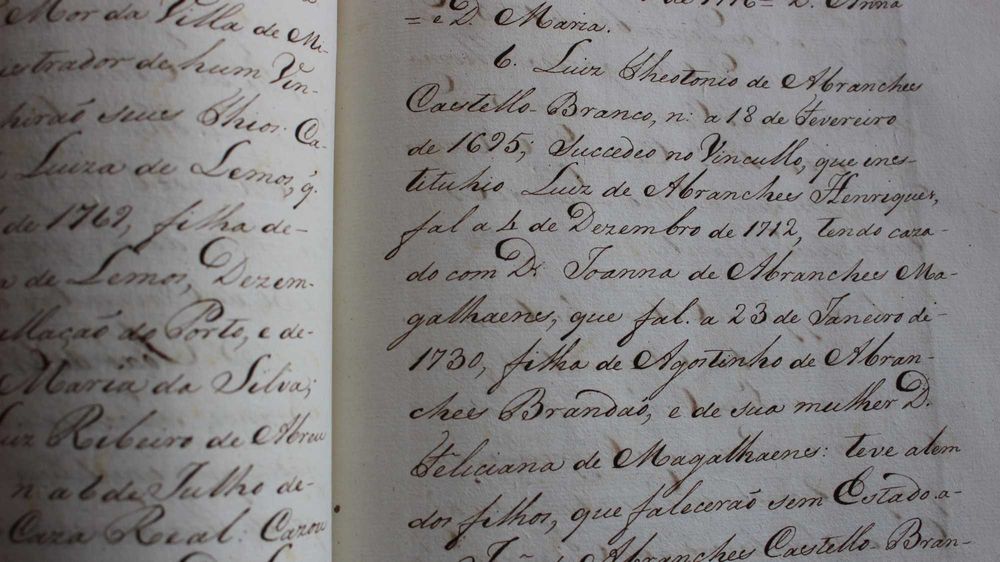 Mor da Villa de Mi-
strador de hum Vin-
hiraõ seus Thios. Ca-
Luiza de Lemos, q̃
de 1762, filha de-
de Lemos, Dezem-
llaçaõ do Porto, e de-
Maria da Silva;
uiz Ribeiro de Abreu
n a 6 de Julho de-
Caza Real: Cazou
de 1716= D. Anna
= e D. Maria.
6. Luiz Theotonio de Abranches
Castello-Branco, n: a 18 de Fevereiro
de 1695; Succedeo no Vincullo, que ins-
tituhio Luiz de Abranches Henriques,
fal a 4 de Dezembro de 1712, tendo caza-
do com D. Joanna de Abranches Ma-
galhaens, que fal. a 23 de Janeiro de-
1730, filha de Agostinho de Abran-
ches Brandaõ, e de sua mulher D.
Feliciana de Magalhaens: teve alem
dos filhos, que faleceraõ sem Estado a-
de Abranches Castello-Bran-